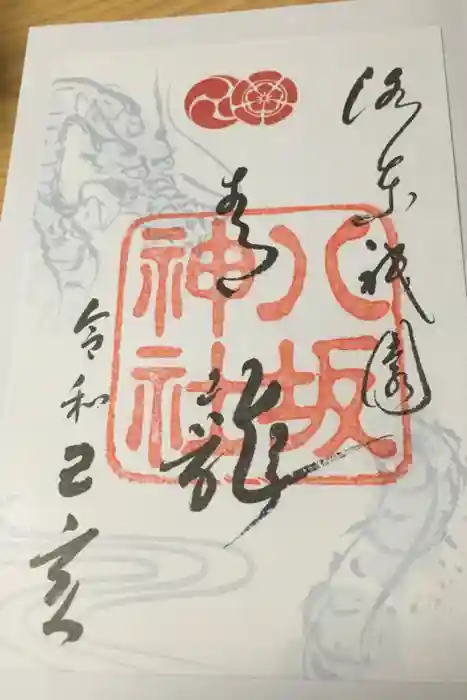 洛東祇園
青龍
八坂神社
令和己亥